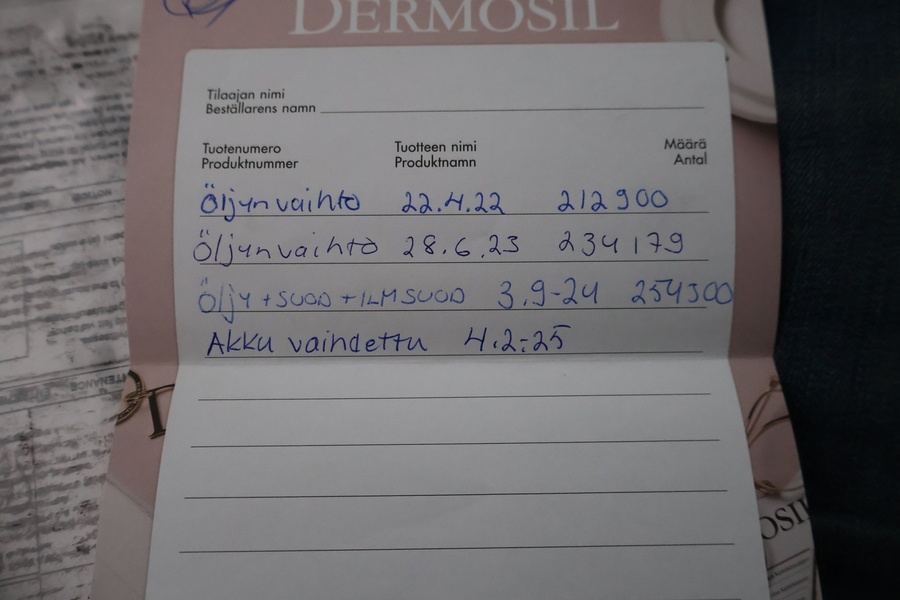 DERMOSIL
Tilaajan nimi
Beställarens namn
Tuotenumero Tuotteen nimi Määrä
Produktnummer Produktnamn Antal
Öljynvaihto 22.4.22 212900
Öljynvaihto 28.6.23 234179
Öljy +SUOD +ILMSUOD 3.9-24 254300
AKKU vaihdettu 4.2-25